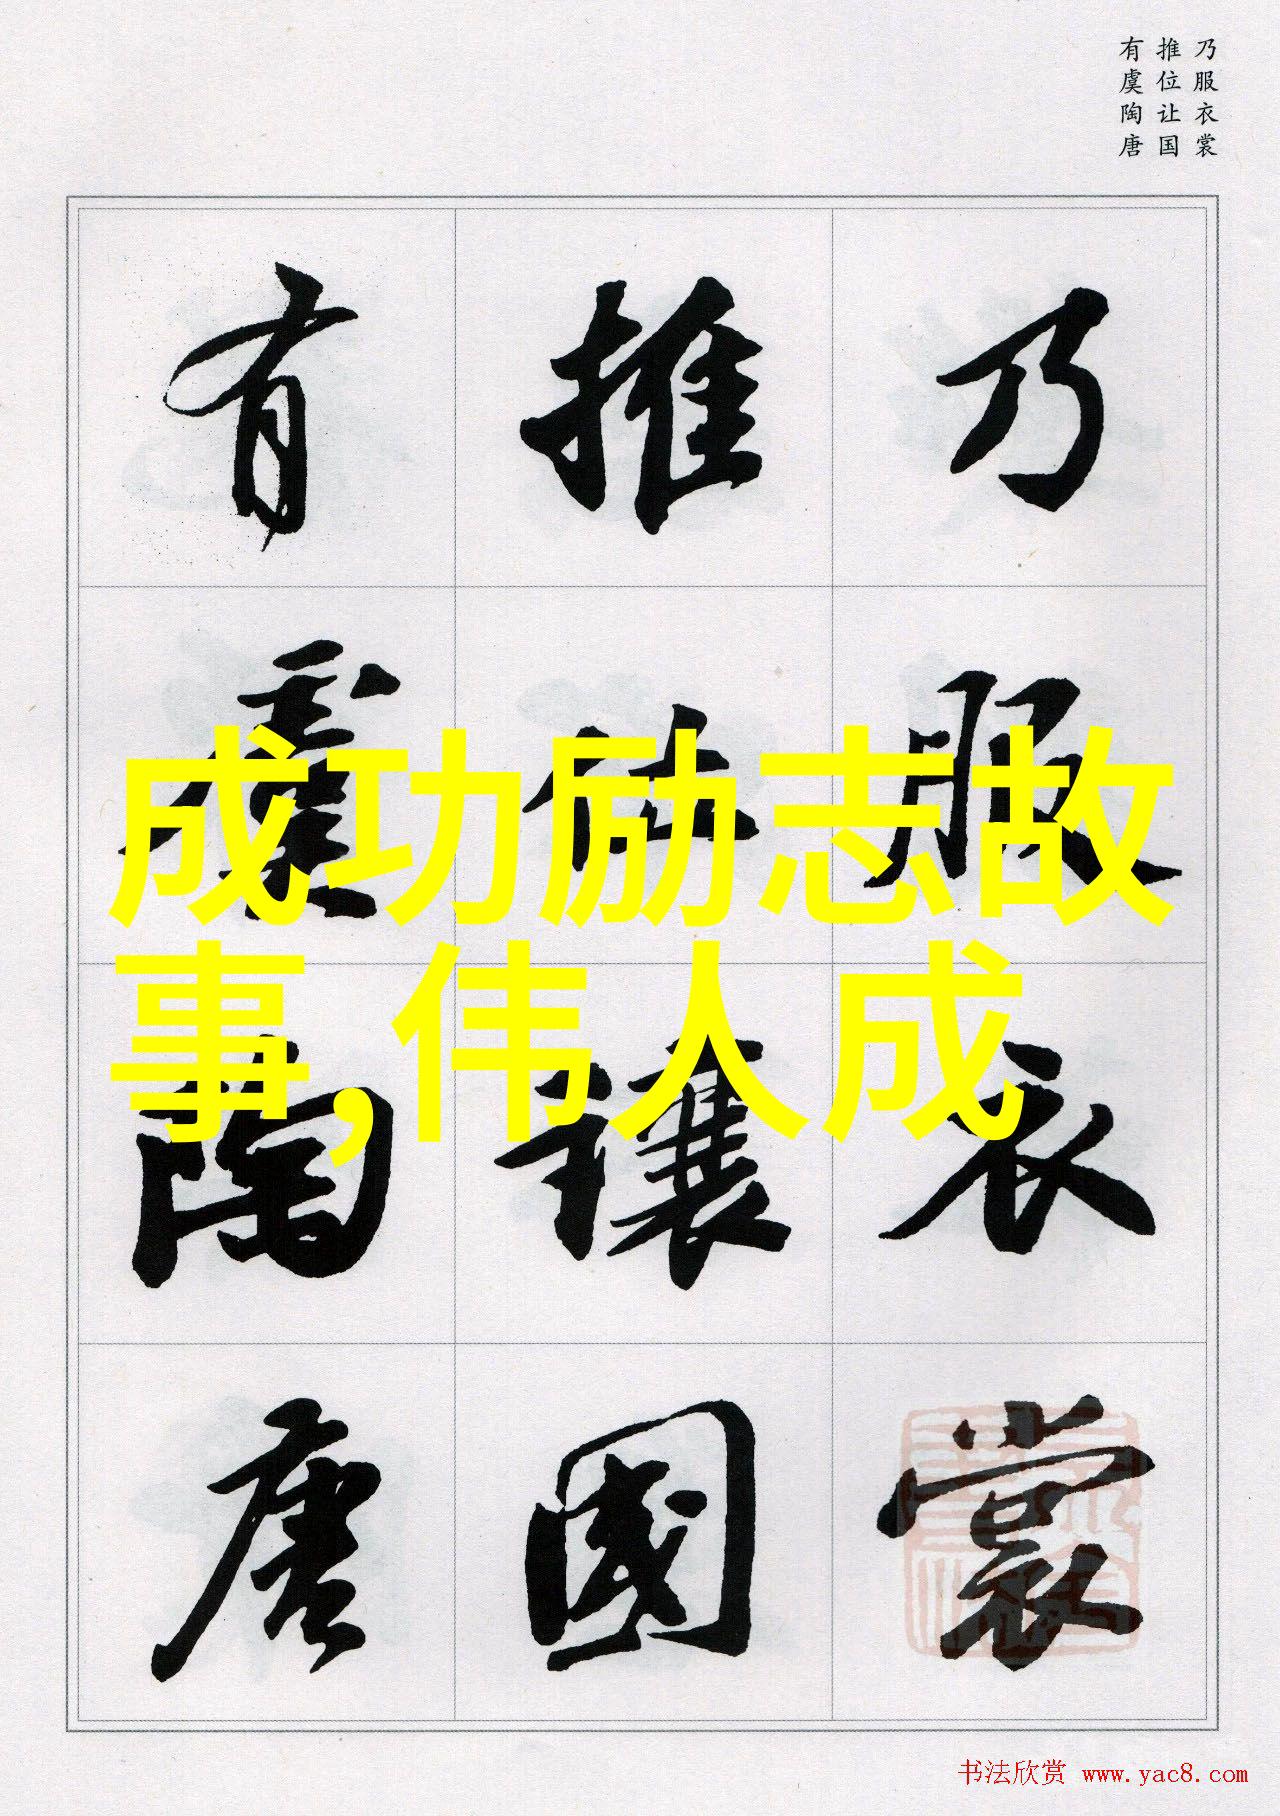 乃服衣裳
推位让国
有虞陶唐
乃服衣裳
推位讓國
有虞陶唐
成功励志故
事,伟人成
书法欣赏 www.yac8.com